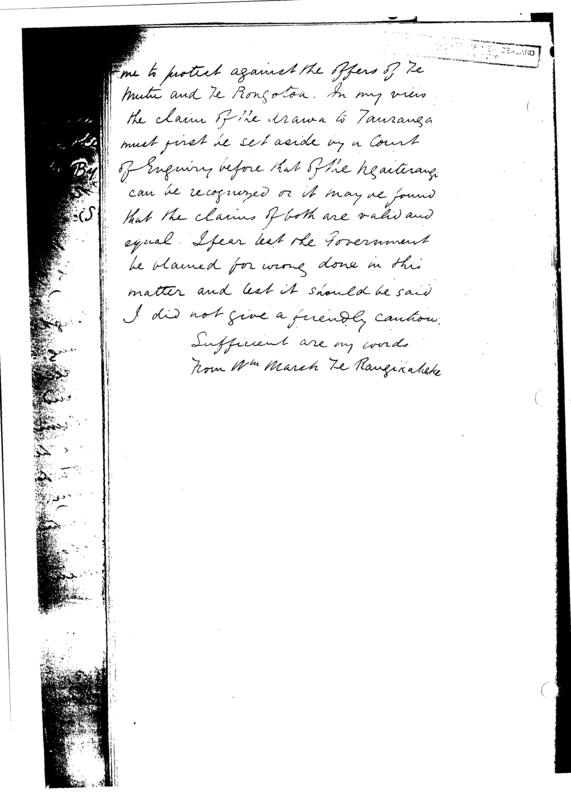 me to protest against the offers of Te
Mutu and Te Rongotoa. In my view
the claim of the Arawa to Tauranga
must first be set aside by a Court
of Enquiry before that of the Ngaiterangi
can be recognized or it may be found
that the claims of both are valid and
equal. I fear lest the Government
be blamed for wrong done in this
matter and lest it should be said
I did not give a friendly caution.
Sufficient are my words
From Wm Marsh Te Rangikaheke
By
(S